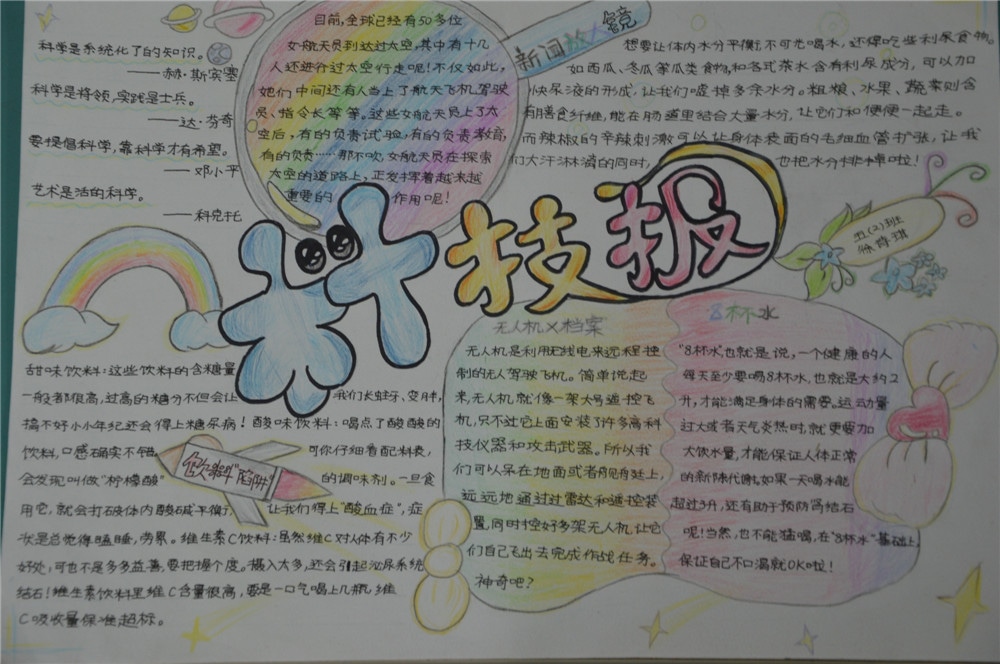 科学是系统化了的知识。
——赫·斯宾塞
科学是将领,实践是士兵。
——达·芬奇
要提倡科学,靠科学才有希望。
——邓小平
艺术是活的科学。
——科克托
目前,全球已经有50多位
女航天员到达过太空,其中有十几
人还进行过太空行走呢!不仅如此,
她们中间还有人当上了航天飞机驾驶
员、指令长等等。这些女航天员上了太
空后,有的负责试验,有的负责教育,
有的负责……那不吹,女航天员在探索
太空的道路上,正发挥着越来越
重要的作用呢!
新闻放大镜
想要让体内水分平衡,不可光喝水,还得吃些利尿食物。
如西瓜、冬瓜等瓜类食物,和各式茶水含有利尿成分,可以加
快尿液的形成,让我们嘘掉多余水分。粗粮、水果、蔬菜则含
有膳食纤维,能在肠道里结合大量水分,让它们和便便一起走。
而辣椒的辛辣刺激可以让身体表面的毛细血管扩张,让我
们大汗淋漓的同时,也把水分排掉啦!
科技报
五(2)班
甜味饮料:这些饮料的含糖量
一般都很高,过高的糖分不但会让我们长蛀牙、变胖,
搞不好小小年纪还会得上糖尿病!酸味饮料:喝点了酸酸的
饮料,口感确实不错。可你仔细看配料表,
会发现叫做“柠檬酸”的调味剂。一旦食
用它,就会打破体内“酸碱”平衡,让我们得上“酸血症”,症
状是总觉得瞌睡,劳累。维生素C饮料:虽然维C对人体有不少
好处,可也不是多多益善,要把握个度。摄入太多,还会引起泌尿系统
结石!维生素饮料里维C含量很高,要是一口气喝上几瓶,维
C吸收量保准超标。
饮料“陷阱”
无人机X档案
无人机是利用无线电来远程控
制的无人驾驶飞机。简单说起
来,无人机就像一架大号遥控飞
机,只不过它上面安装了许多高科
技仪器和攻击武器。所以我
们可以呆在地面或者舰舟艇上,
远远地通过过雷达和遥控装
置,同时控好多架无人机,让它
们自己飞出去完成作战任务。
神奇吧?
8杯水
“8杯水”也就是说,一个健康的人
每天至少要喝8杯水,也就是大约2
升,才能满足身体的需要。运动量
过大或者天气炎热时,就更要加
大饮水量,才能保证人体正常
的新陈代谢,如果一天喝水能
超过3升,还有助于预防肾结石
呢!当然,也不能猛喝,在“8杯水”基础上,
保证自己不口渴就OK啦!